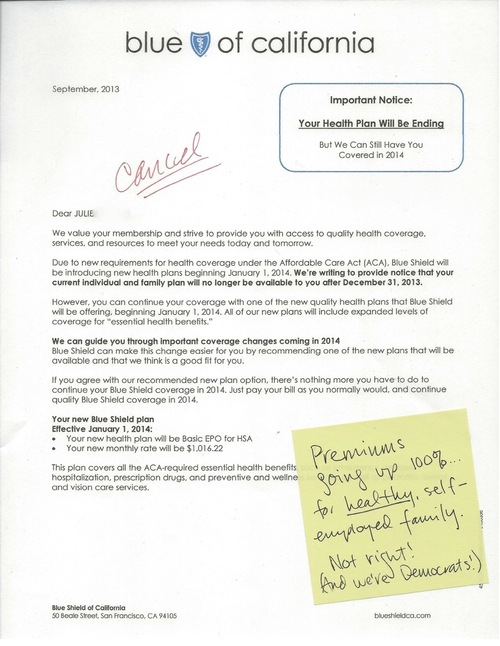 blue of california
September, 2013
Important Notice:
Your Health Plan Will Be Ending
But We Can Still Have You
Covered in 2014
Cancel
Dear JULIE
We value your membership and strive to provide you with access to quality health coverage,
services, and resources to meet your needs today and tomorrow.
Due to new requirements for health coverage under the Affordable Care Act (ACA), Blue Shield will
be introducing new health plans beginning January 1, 2014. We're writing to provide notice that your
current individual and family plan will no longer be available to you after December 31, 2013.
However, you can continue your coverage with one of the new quality health plans that Blue Shield
will be offering, beginning January 1, 2014. All of our new plans will include expanded levels of
coverage for "essential health benefits."
We can guide you through important coverage changes coming in 2014
Blue Shield can make this change easier for you by recommending one of the new plans that will be
available and that we think is a good fit for you.
If you agree with our recommended new plan option, there's nothing more you have to do to
continue your Blue Shield coverage in 2014. Just pay your bill as you normally would, and continue
quality Blue Shield coverage in 2014.
Your new Blue Shield plan
Effective January 1, 2014:
• Your new health plan will be Basic EPO for HSA
• Your new monthly rate will be $1,016.22
This plan covers all the ACA-required essential health benefits,
hospitalization, prescription drugs, and preventive and wellne
and vision care services.
Premiums
going up 100%...
for healthy, self-
employed family.
Not right!
(And we're Democrats!)
Blue Shield of California
50 Beale Street, San Francisco, CA 94105
blueshieldca.com